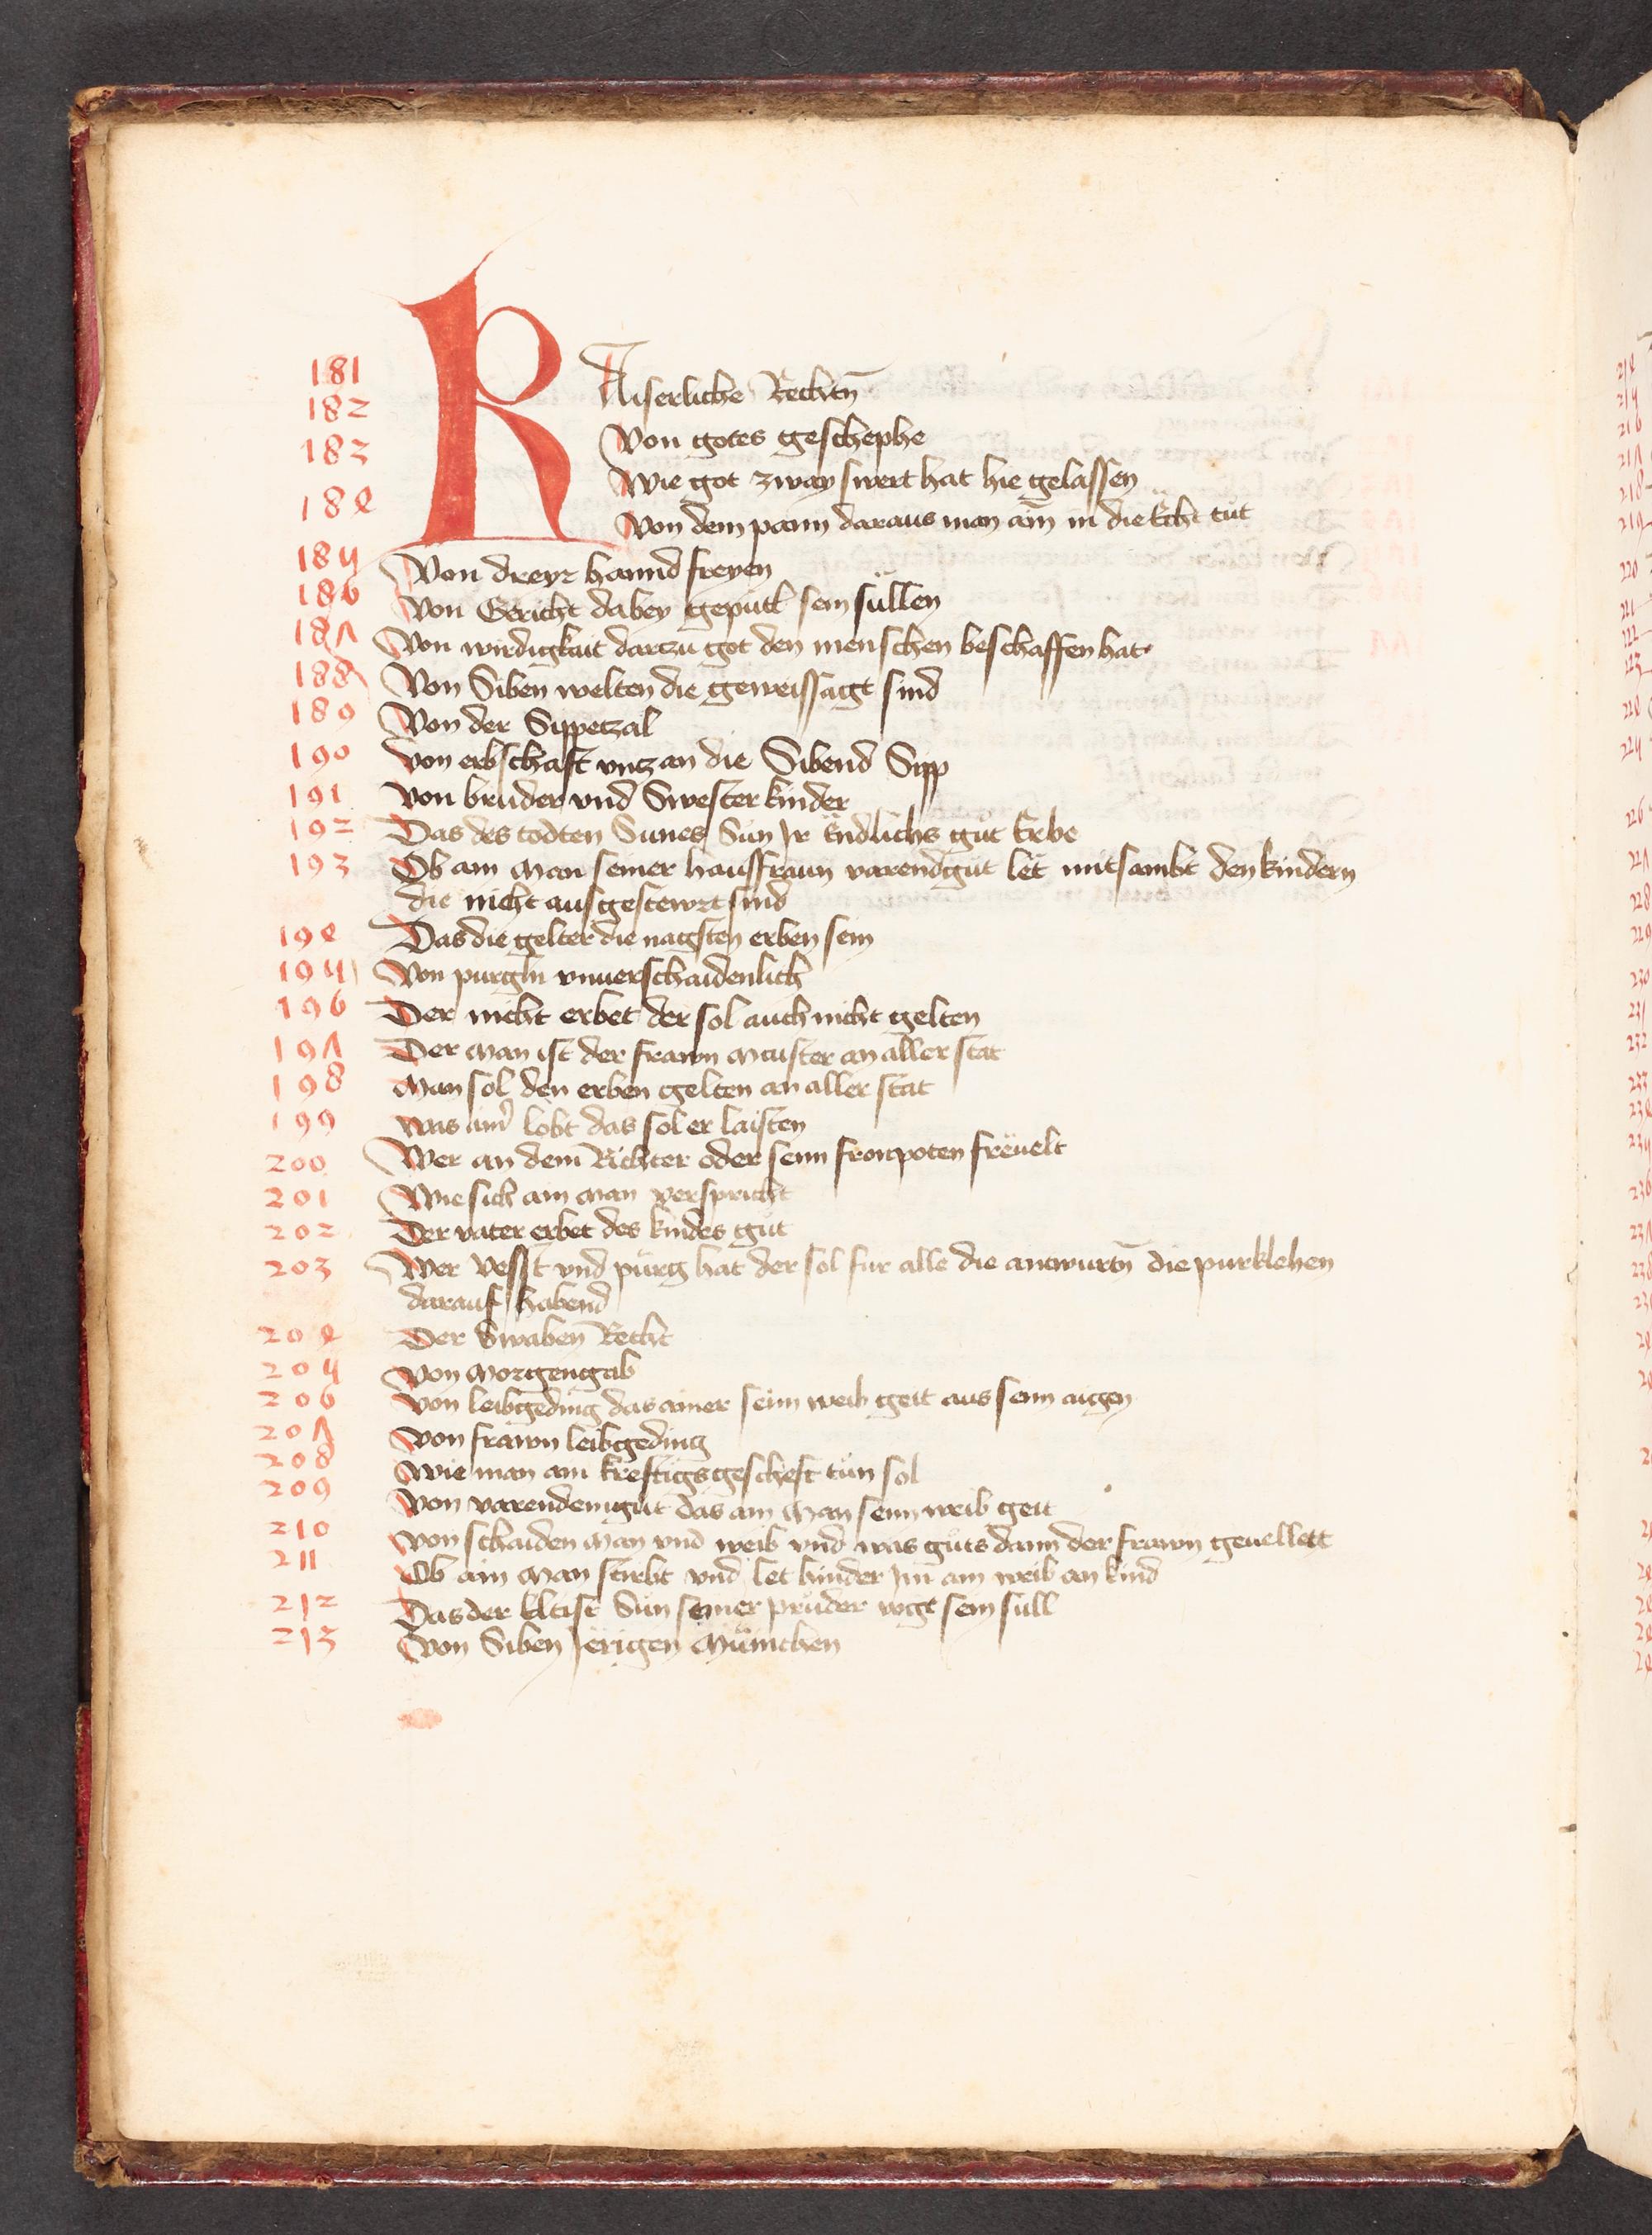 181 KAiserliche Rechtn̄
182 Von gotes geschephe
183 Wie got zway swert hat hie gelassen
184 Von dem pann daraus man ain̄ in die Ëcht tůt
185 Von dreyr hannd freyen
186 Von Gericht dabey gepütl sein süllen
187 Von wirdigkait darzu got den menschen beschaffen hat
188 Von Siben welten die geweissagt sind
189 Von der Sippetzal
190 Von erbschaft vntz an die Sibend Sipp
191 Von bruder vnd Swester kinder
192 Das des todten Sunes Sun Ir Endlichs gůt Erbe
193 Ob ain Man seiner hausfraun varendgůt let mitsambt den kindern
die nicht ausgestewrt sind
194 Das die gelter die nagsten erben sein
195 Von purgln vnuerschaidenlich
196 Der nicht erbet der sol auch nicht gelten
197 Der Man ist der frawn Maister an aller stat
198 Man sol den erben gelten an aller stat
199 Was ainr lobt das sol er laisten
200 Wer an dem Richter oder seim fronpoten freuelt
201 Wie sich ain Man verspricht
202 Der vater erbet des kindes gůt
203 Wer Vesst vnd pürg hat der sol fur alle die antwurtn̄ die purklehen
darauf habend
204 Der Swaben Recht
205 Von Morgengab
206 Von leibgeding das ainer seim weib geit aus seim aigen
207 Von frawn leibgeding
208 Wie man ain kreftigs gescheft tůn sol
209 Von varendemgůt das ain Man seim weib geit
210 Von schaiden Man vnd weib vnd was gůts dann der frawn geuellett
211 Ob ain Man stirbt vnd let hinder Im ain weib an kind
212 Das der Eltist Sun seiner průder vogt sein sull
213 Von Siben Jerigen Münichen